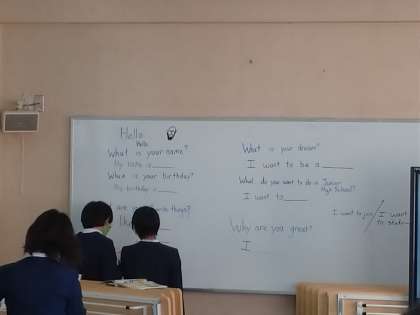 Hello
Hello
What is your name?
My name is
When is your birthday?
My birthday is
are your things?
I like
What is your dream?
I want to be a
What do you want to do in Junior High School?
I want to
I want to join / I want to study
Why are you great?
I